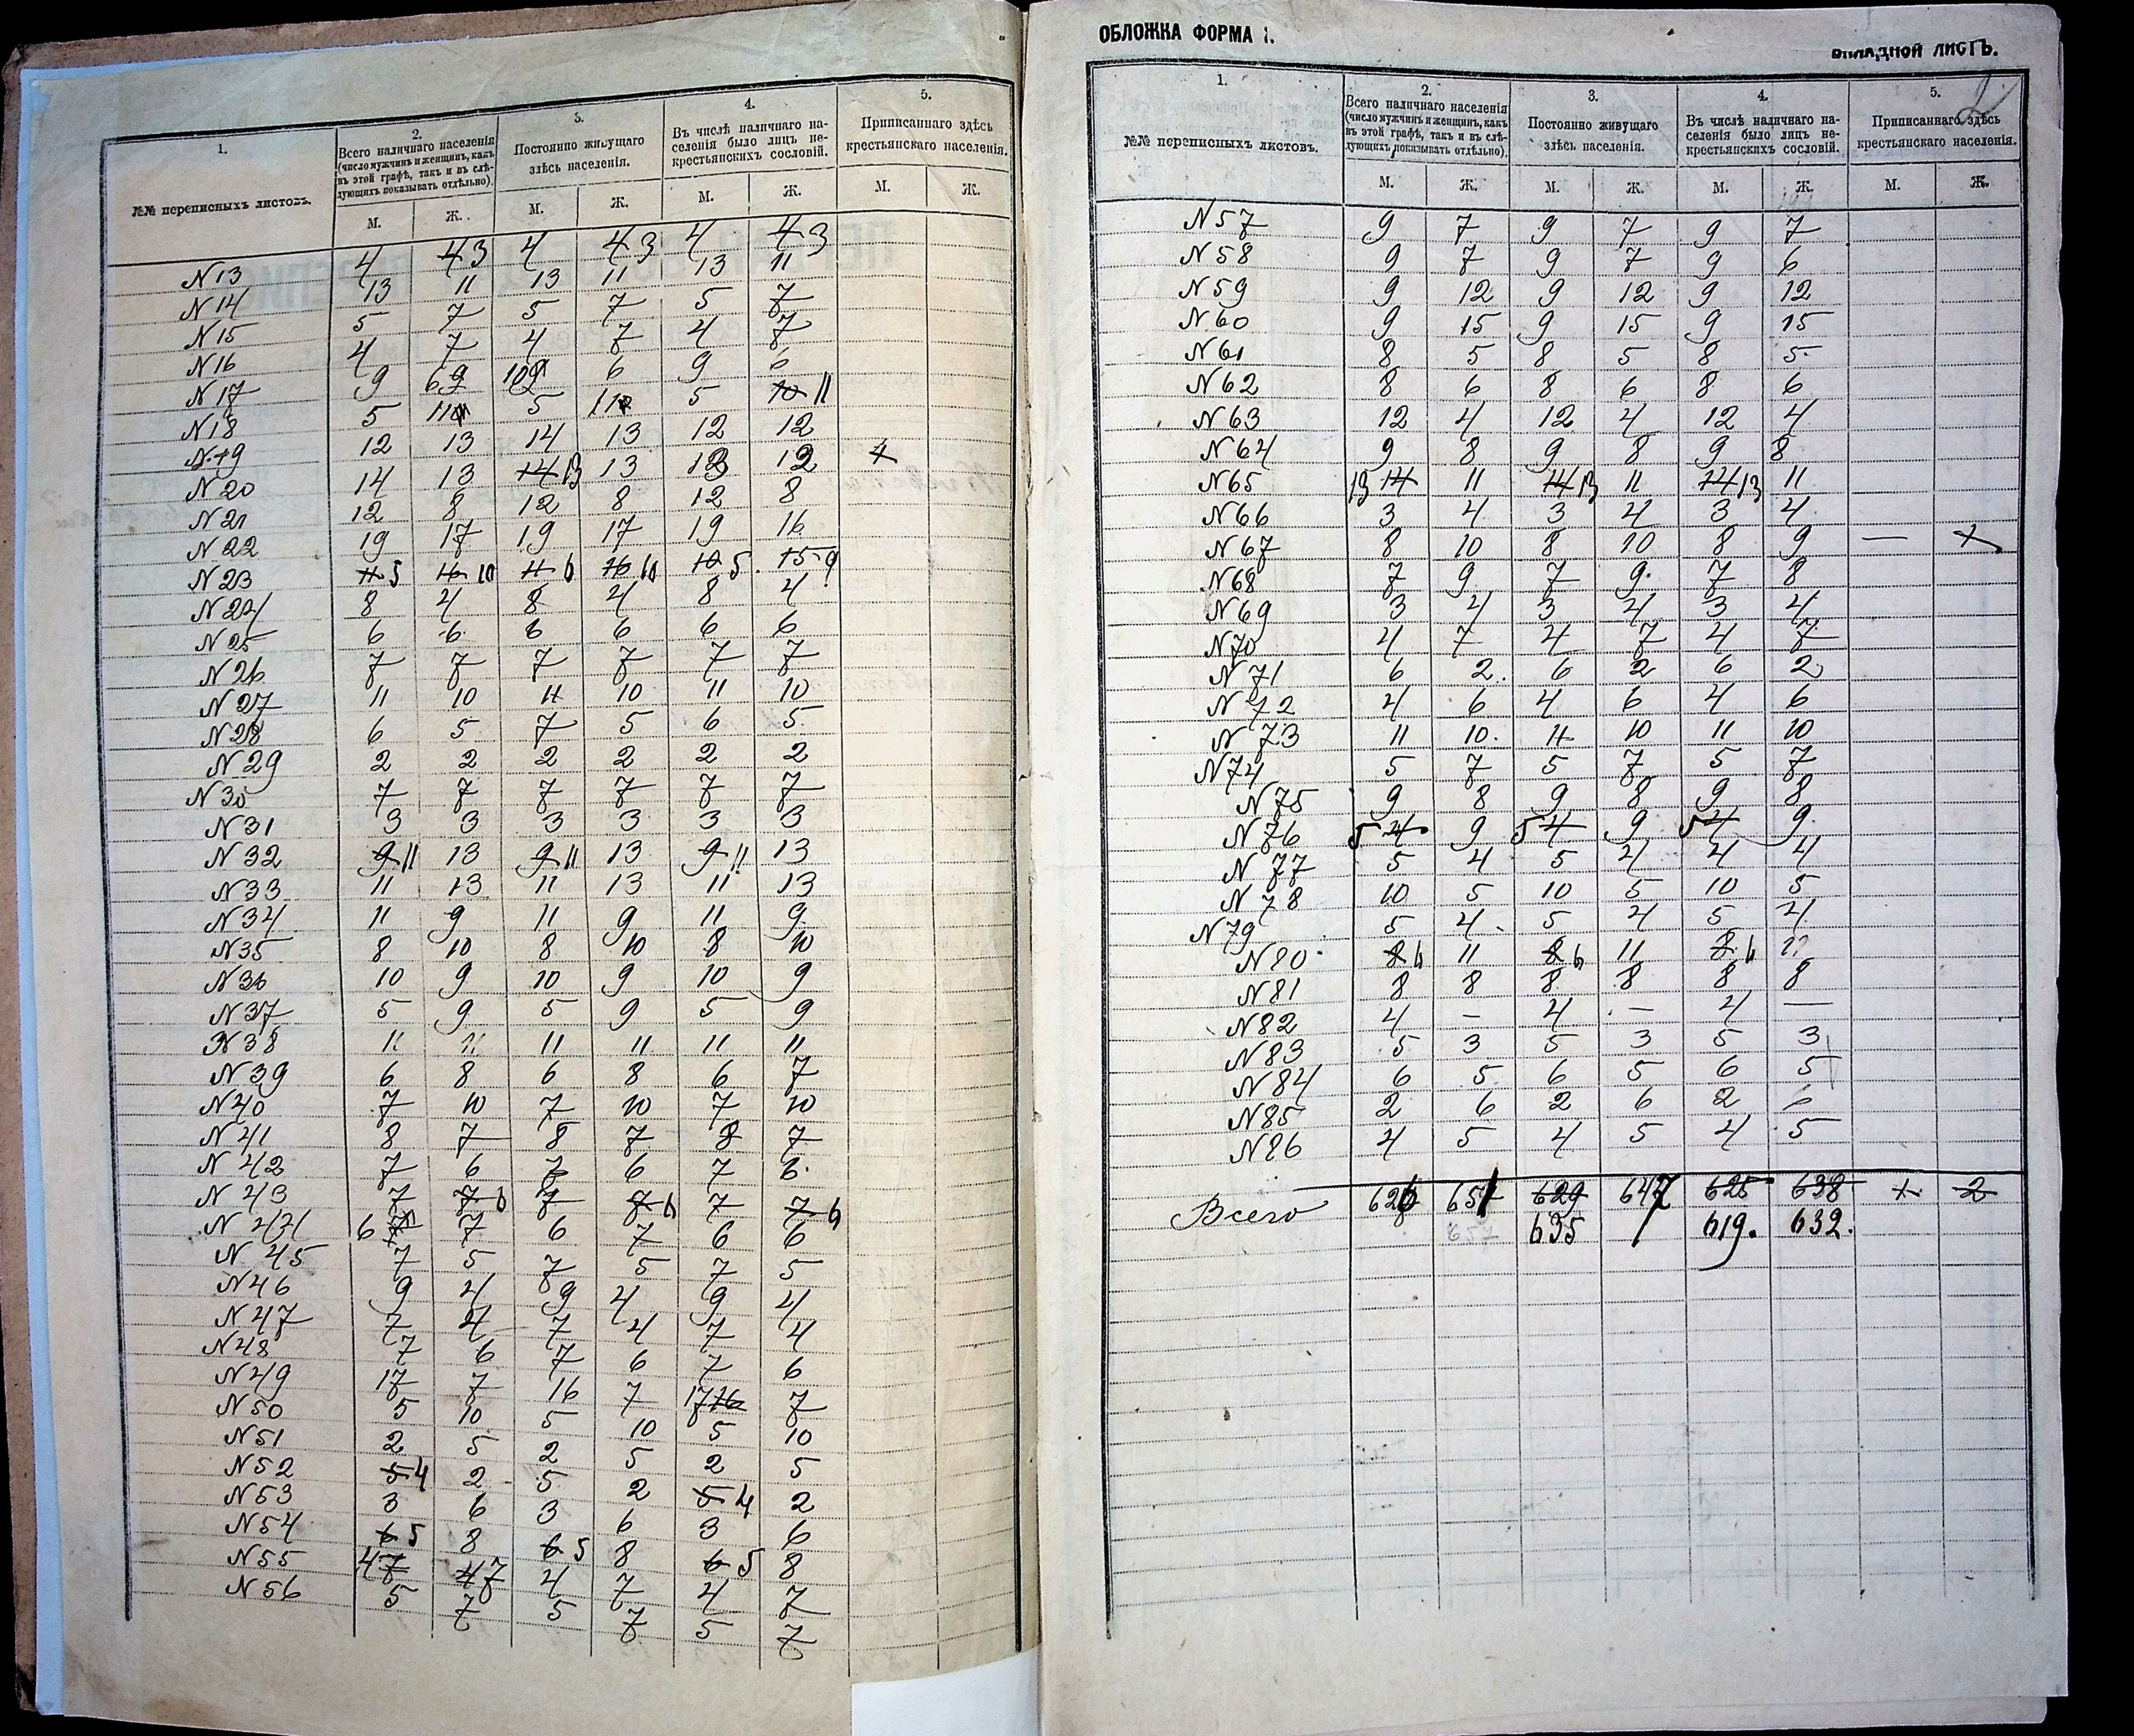 1.
2.
3.
4.
5.
№№ переписныхъ листовъ.
Всего наличнаго населенія (число мужчинъ и женщинъ, какъ въ этой графѣ, такъ и въ слѣдующихъ показывать отдѣльно).
Постоянно живущаго здѣсь населенія.
Въ числѣ наличнаго населенія было лицъ некрестьянскихъ сословій.
Приписаннаго здѣсь крестьянскаго населенія.
М. Ж. М. Ж. М. Ж. М. Ж.
N 13 4 4 3 4 4 3 4 4 3
N 14 13 11 13 11 13 11
N 15 5 7 5 7 5 7
N 16 4 7 4 7 4 7
N 17 9 6 9 6 9 6
N 18 5 11 5 11 5 10 11
N 19 12 13 14 13 12 12
N 20 14 13 14 13 13 13 12
N 21 12 8 12 8 12 8
N 22 19 17 19 17 19 16
N 23 11 5 16 10 11 6 16 10 10 5 15 9
N 24 8 4 8 4 8 4
N 25 6 6 6 6 6 6
N 26 7 7 7 7 7 7
N 27 11 10 11 10 11 10
N 28 6 5 7 5 6 5
N 29 2 2 2 2 2 2
N 30 7 7 7 7 7 7
N 31 3 3 3 3 3 3
N 32 9 11 13 9 11 13 9 11 13
N 33 11 13 11 13 11 13
N 34 11 9 11 9 11 9
N 35 8 10 8 10 8 10
N 36 10 9 10 9 10 9
N 37 5 9 5 9 5 9
N 38 11 11 11 11 11 11
N 39 6 8 6 8 6 7
N 40 7 10 7 10 7 10
N 41 8 7 8 7 8 7
N 42 7 6 7 6 7 6
N 43 7 7 6 7 7 6 7 7 6
N 44 6 7 7 6 7 6 6
N 45 7 5 7 5 7 5
N 46 9 4 9 4 9 4
N 47 7 4 7 4 7 4
N 48 7 6 7 6 7 6
N 49 17 7 16 7 17 16 7
N 50 5 10 5 10 5 10
N 51 2 5 2 5 2 5
N 52 5 4 2 5 2 5 4 2
N 53 3 6 3 6 3 6
N 54 6 5 8 6 5 8 6 5 8
N 55 4 7 4 7 4 7 4 7
N 56 5 7 5 7 5 7
ОБЛОЖКА ФОРМА 1.
ВКЛАДНОЙ ЛИСТЪ.
2
1.
2.
3.
4.
5.
№№ переписныхъ листовъ.
Всего наличнаго населенія (число мужчинъ и женщинъ, какъ въ этой графѣ, такъ и въ слѣдующихъ показывать отдѣльно).
Постоянно живущаго здѣсь населенія.
Въ числѣ наличнаго населенія было лицъ некрестьянскихъ сословій.
Приписаннаго здѣсь крестьянскаго населенія.
М. Ж. М. Ж. М. Ж. М. Ж.
N 57 9 7 9 7 9 7
N 58 9 7 9 7 9 6
N 59 9 12 9 12 9 12
N 60 9 15 9 15 9 15
N 61 8 5 8 5 8 5
N 62 8 6 8 6 8 6
N 63 12 4 12 4 12 4
N 64 9 8 9 8 9 8
N 65 13 14 11 14 13 11 14 13 11
N 66 3 4 3 4 3 4
N 67 8 10 8 10 8 9 —
N 68 7 9 7 9 7 8
N 69 3 4 3 4 3 4
N 70 4 7 4 7 4 7
N 71 6 2 6 2 6 2
N 72 4 6 4 6 4 6
N 73 11 10 11 10 11 10
N 74 5 7 5 7 5 7
N 75 9 8 9 8 9 8
N 76 5 4 9 5 4 9 5 4 9
N 77 5 4 5 4 4 4
N 78 10 5 10 5 10 5
N 79 5 4 5 4 5 4
N 80 8 6 11 8 6 11 8 6 11
N 81 8 8 8 8 8 8
N 82 4 — 4 — 4 —
N 83 5 3 5 3 5 3
N 84 6 5 6 5 6 5
N 85 2 6 2 6 2 6
N 86 4 5 4 5 4 5
Всего 626 651 629 647 625 638 2
635 619. 632.